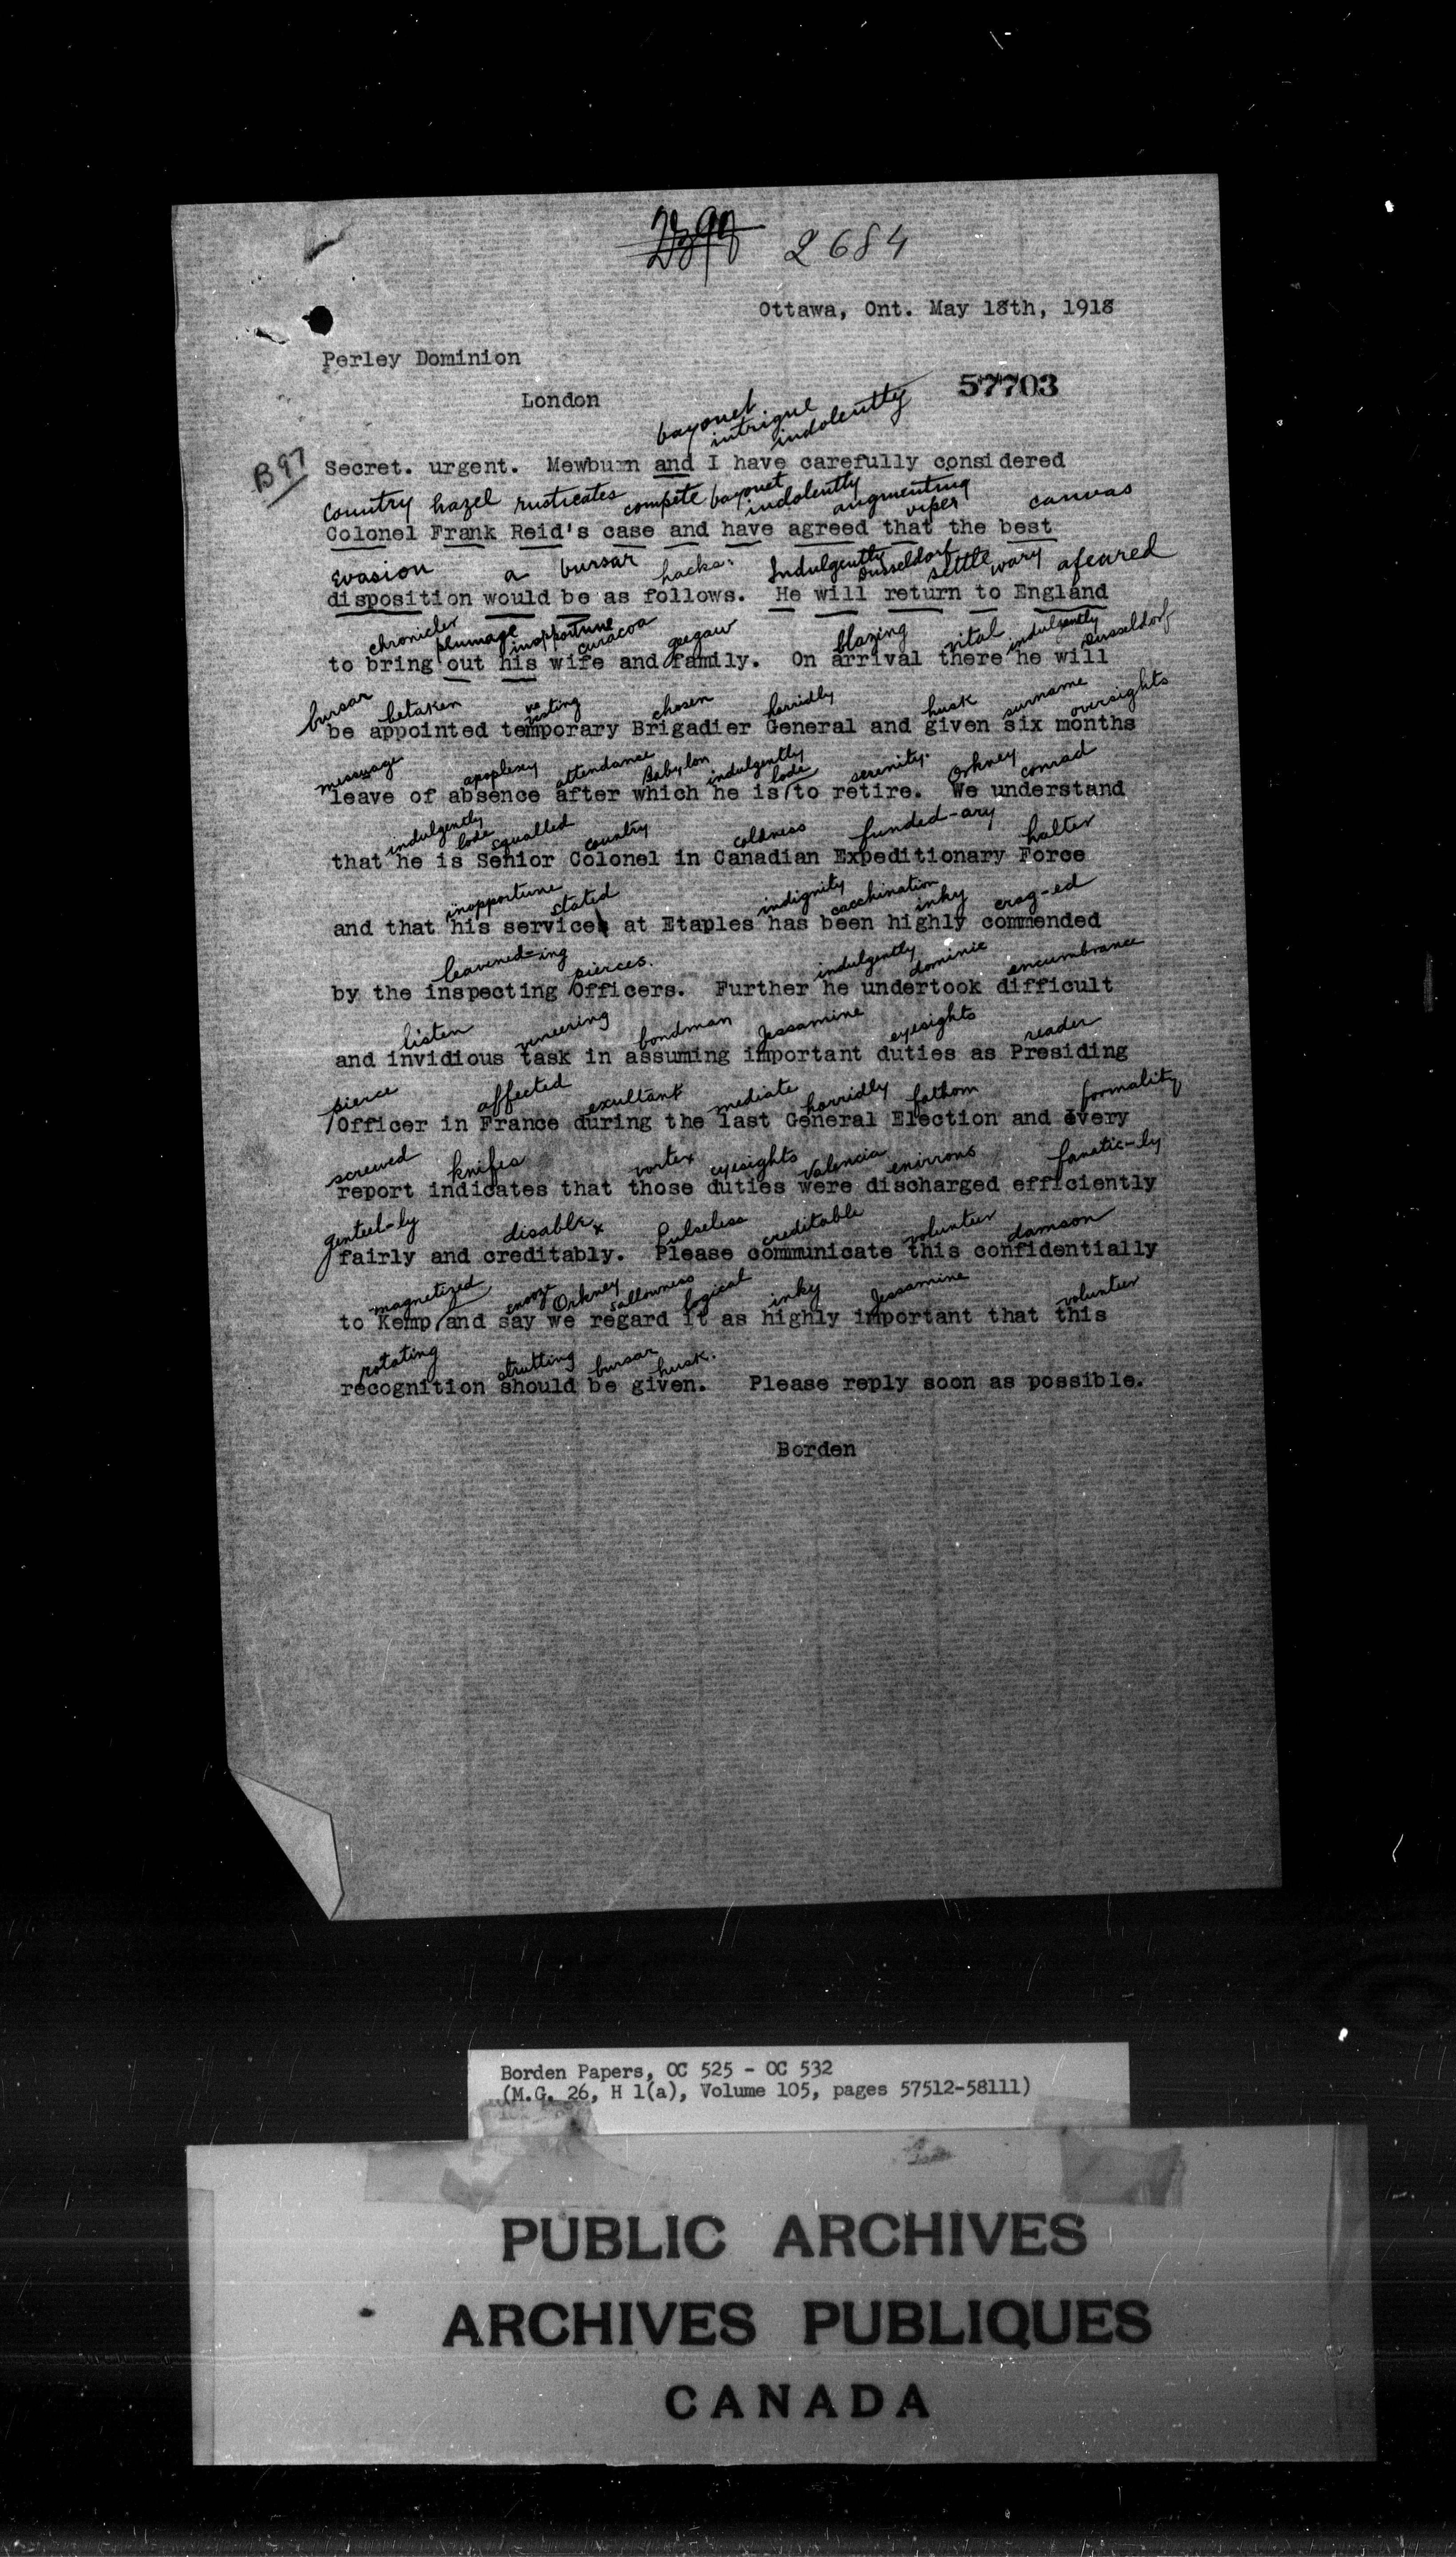 2684
Ottawa, Ont. May 18th, 1918
Perley Dominion
57703
London
bayonet intrigue indolently
B 97
Secret. urgent. Mewburn and I have carefully considered
Country hazel rusticates compete bayonet indolently augmenting viper canvas
Colonel Frank Reid's case and have agreed that the best
Evasion a bursar hacks. Indulgently Dusseldorf settle wary afeared
disposition would be as follows. He will return to England
chronicler plumage inopportune curacoa geegaw blazing vital indulgently Dusseldorf
to bring out his wife and family. On arrival there he will
bursar betaken vesting chosen horridly husk surname oversights
be appointed temporary Brigadier General and given six months
message apoplexy attendance Babylon indulgently lode serenity. Orkney conrad
leave of absence after which he is to retire. We understand
indulgently lode squalled country coldness funded-ary halter
that he is Senior Colonel in Canadian Expeditionary Force
inopportune stated indignity cacchination inky crag-ed
and that his service at Etaples has been highly commended
leavened-ing pierces. indulgently dominie encumbrance
by the inspecting Officers. Further he undertook difficult
listen veneering bondman Jessamine eyesights reader
and invidious task in assuming important duties as Presiding
pierce affected exultant mediate horridly fathom formality
Officer in France during the last General Election and every
screwed knifes vortex eyesights Valencia environs fanatic-ly
report indicates that those duties were discharged efficiently
genteel-ly disable x Pulseless creditable volunteer damson
fairly and creditably. Please communicate this confidentially
magnetized snooze Orkney sallowness logical inky Jessamine volunteer
to Kemp and say we regard it as highly important that this
rotating strutting bursar husk.
recognition should be given. Please reply soon as possible.
Borden
Borden Papers, OC 525 - OC 532
(M.G. 26, H 1(a), Volume 105, pages 57512-58111)
PUBLIC ARCHIVES
ARCHIVES PUBLIQUES
CANADA